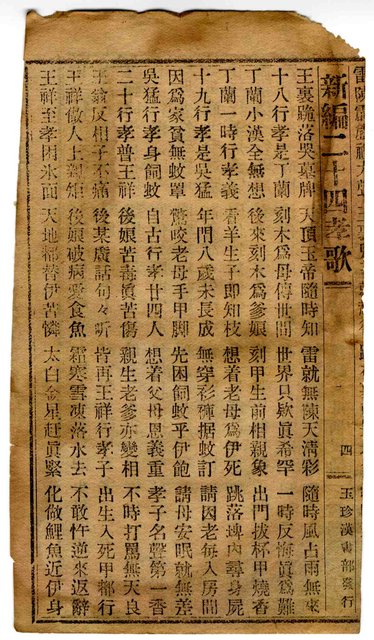 新編二十四孝歌
四
玉珍漢書部發行
王裒跪落哭墓牌 天頂玉帝隨時知 雷就無陳天淸彩 隨時風占雨無來
十八行孝是丁蘭 刻木爲母傳世間 世界只欵眞希罕 一時反悔眞爲難
丁蘭小漢全無想 後來刻木爲爹娘 刻甲生前相親象 出門拔杯甲燒香
丁蘭一時行孝義 看羊生子即知枝 想着老母爲伊死 跳落埤內尋身屍
十九行孝是吳猛 年間八歲未長成 無穿衫褲据蚊訂 請因老母入房間
因爲家貧無蚊罩 驚咬老母手甲脚 先困飼蚊乎伊飽 請母安眠就無差
吳猛行孝身飼蚊 自古行孝廿四人 想着父母恩義重 孝子名聲第一香
二十行孝普王祥 後娘苦毒眞苦傷 親生老爹亦變相 不時打罵無天良
王翁反相子不痛 後某廣話句々听 皆再王祥行孝子 出生入死甲都行
王祥做人上艱矩 後娘破病愛食魚 霜寒雪凍落水去 不敢忤逆來返辭
王祥至孝困氷面 天地都替伊苦憐 太白金星赶眞緊 化做鯉魚近伊身